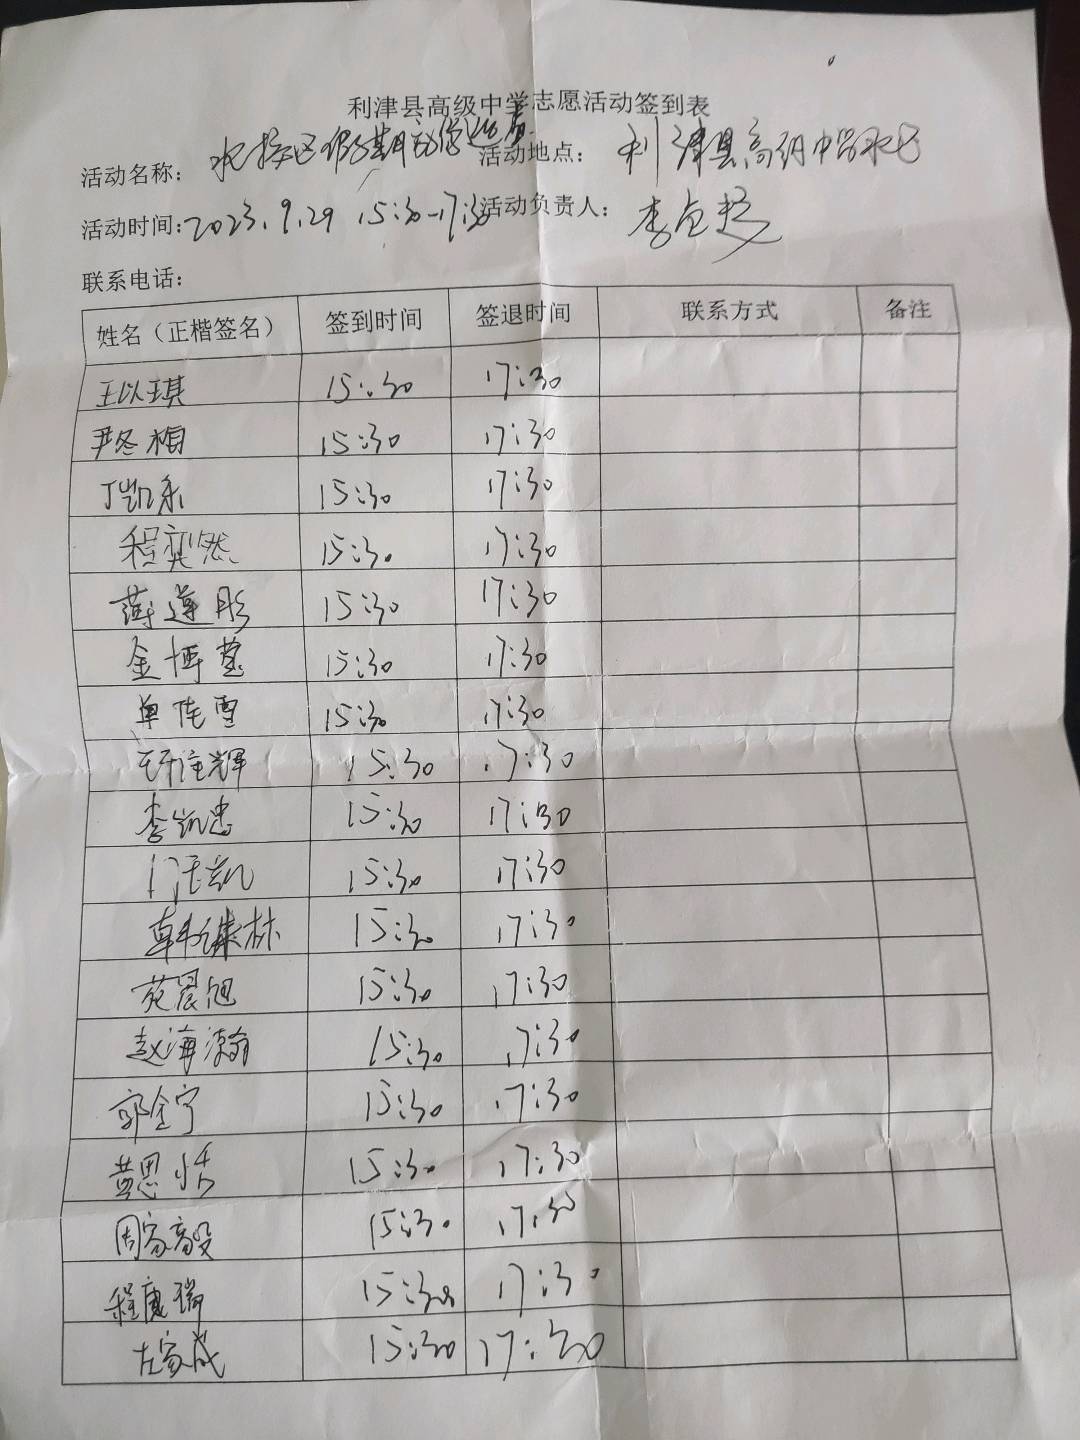 利津县高级中学志愿活动签到表
活动名称: 水校区假期 活动地点: 利津县高级中学水校区
活动时间:2023.9.29 15:30-17:30 活动负责人:
联系电话:
姓名（正楷签名） 签到时间 签退时间 联系方式 备注
王以琪 15:30 17:30
尹冬梅 15:30 17:30
丁凯乐 15:30 17:30
程奕然 15:30 17:30
薄莲彤 15:30 17:30
金博莹 15:30 17:30
单佳雪 15:30 17:30
15:30 17:30
李凯忠 15:30 17:30
凯 15:30 17:30
韩继林 15:30 17:30
苑晨旭 15:30 17:30
赵海瀚 15:30 17:30
郭全宁 15:30 17:30
黄思恬 15:30 17:30
周家毅 15:30 17:30
程康瑞 15:30 17:30
左家成 15:30 17:30